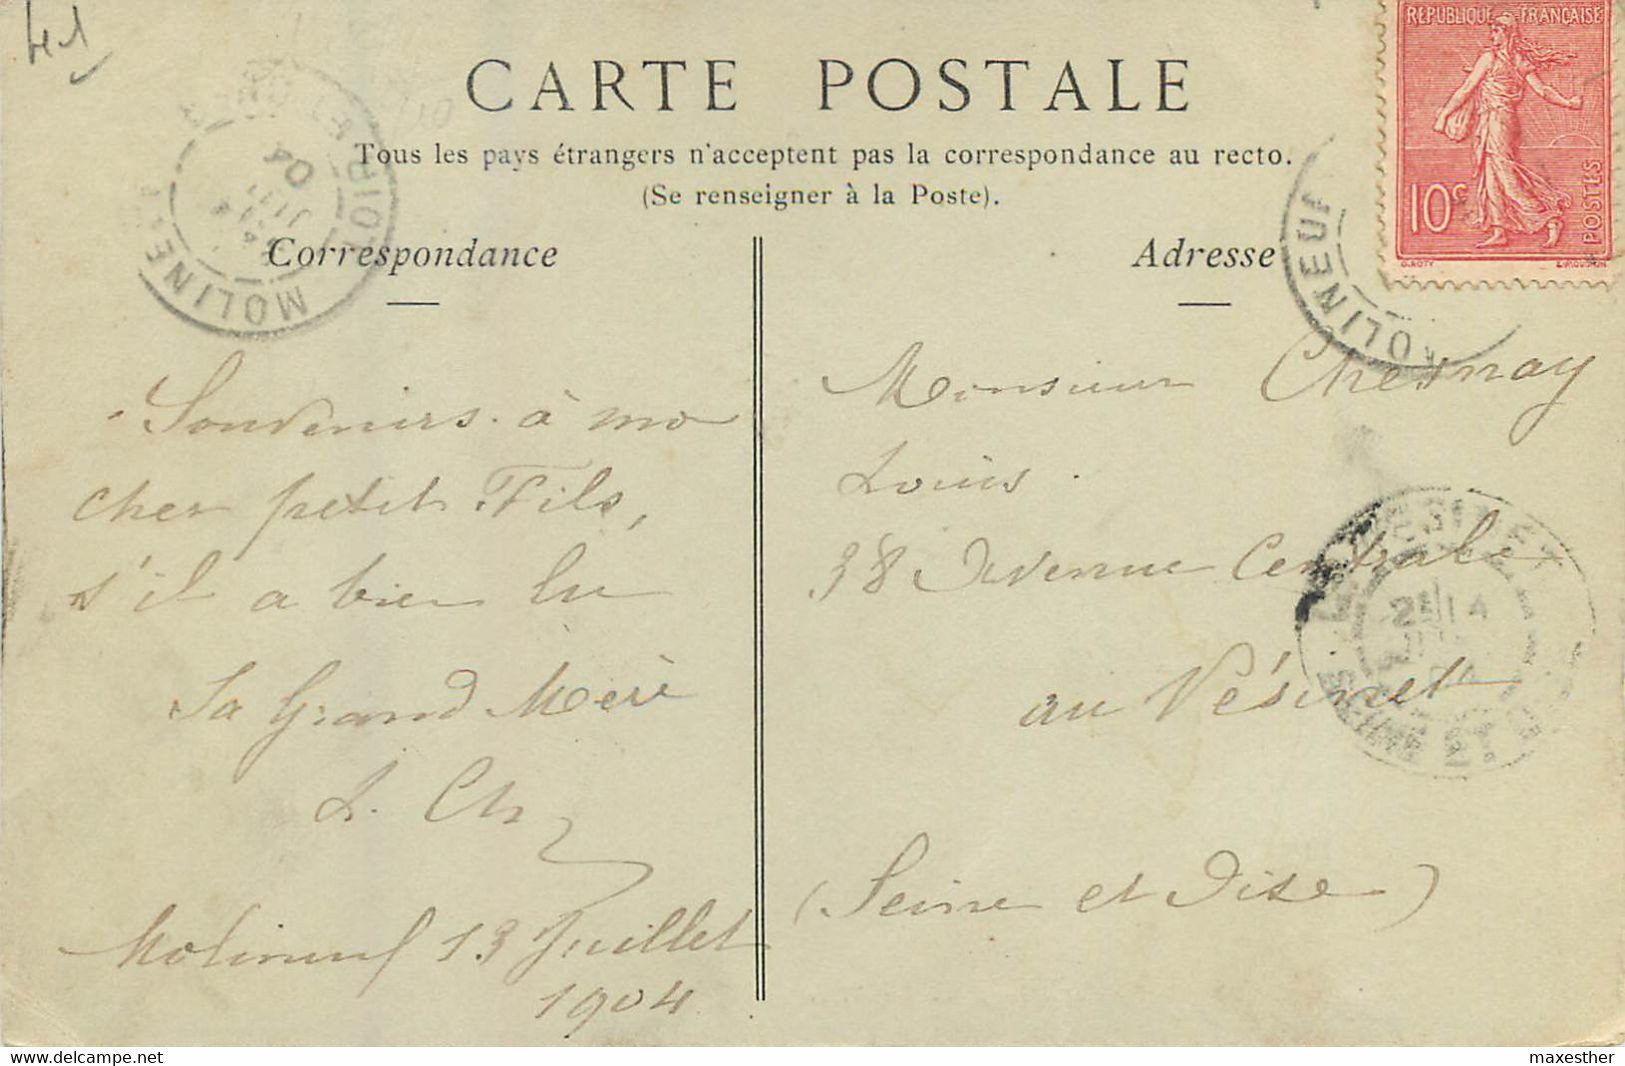 41
CARTE POSTALE
Tous les pays étrangers n'acceptent pas la correspondance au recto.
(Se renseigner à la Poste).
Correspondance
Adresse
REPUBLIQUE FRANÇAISE
10c
POSTES
O.ROTY
MOLINEUF
LOIR-ET-CHER
04
MOLINEUF
Souvenirs à mo
cher petit Fils,
s'il a bien lu
Sa Grand Mère
L. Ch
Molineuf 13 Juillet
1904
Monsieur Chesnay
Louis.
38 Avenue Centrale
au Vésinet
(Seine et Oise)
LE VESINET
21 14
SEINE ET O
Delcampe.net
maxesther